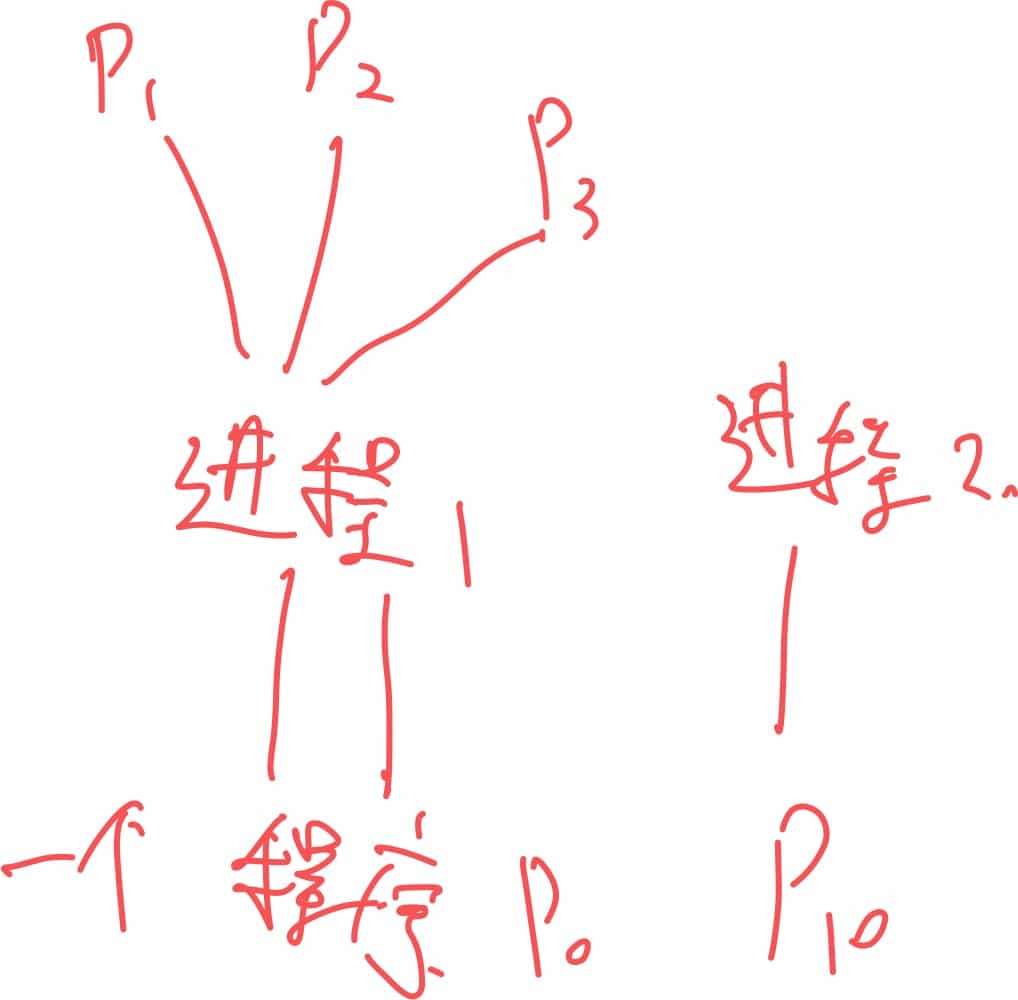 P1
P2
P3
进程1
进程2
一个程序 P0
P10